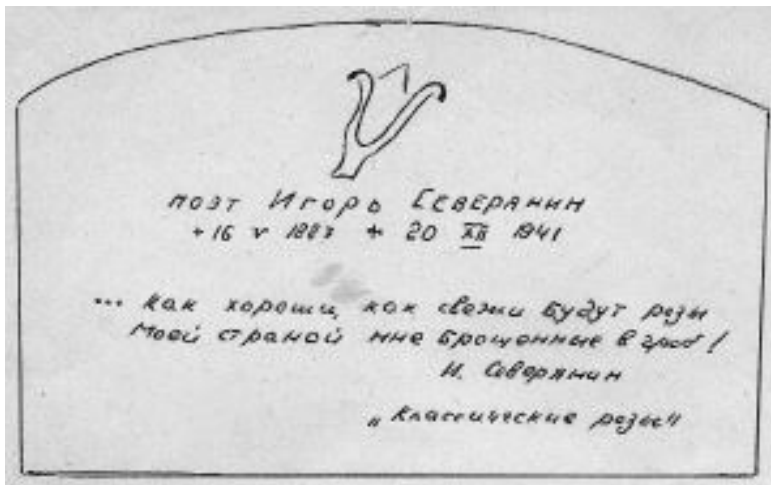 поэт Игорь Северянин
+ 16 V 1887 + 20 XII 1941
... как хороши, как свежи будут розы
моей страной мне брошенные в гроб!
И. Северянин
„Классические розы"